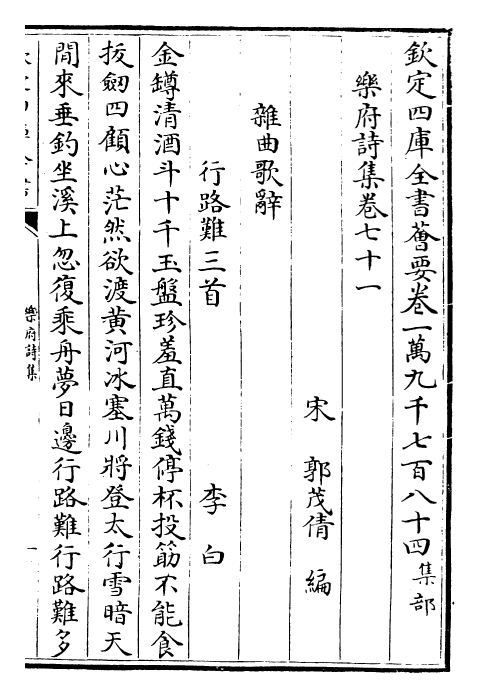 欽定四庫全書薈要卷一萬九千七百八十四集部
樂府詩集卷七十一
宋 郭茂倩 編
雜曲歌辭
行路難三首 李白
金罇清酒斗十千玉盤珍羞直萬錢停杯投筯不能食
拔劒四顧心茫然欲渡黄河冰塞川將登太行雪暗天
閒來垂釣坐溪上忽復乘舟夢日邊行路難行路難多
樂府詩集
一